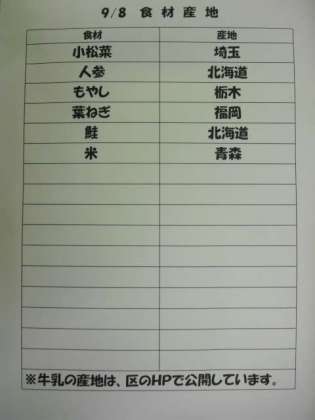 9/8 食材産地
食材 産地
小松菜 埼玉
人参 北海道
もやし 栃木
葉ねぎ 福岡
鮭 北海道
米 青森
※牛乳の産地は、区のHPで公開しています。